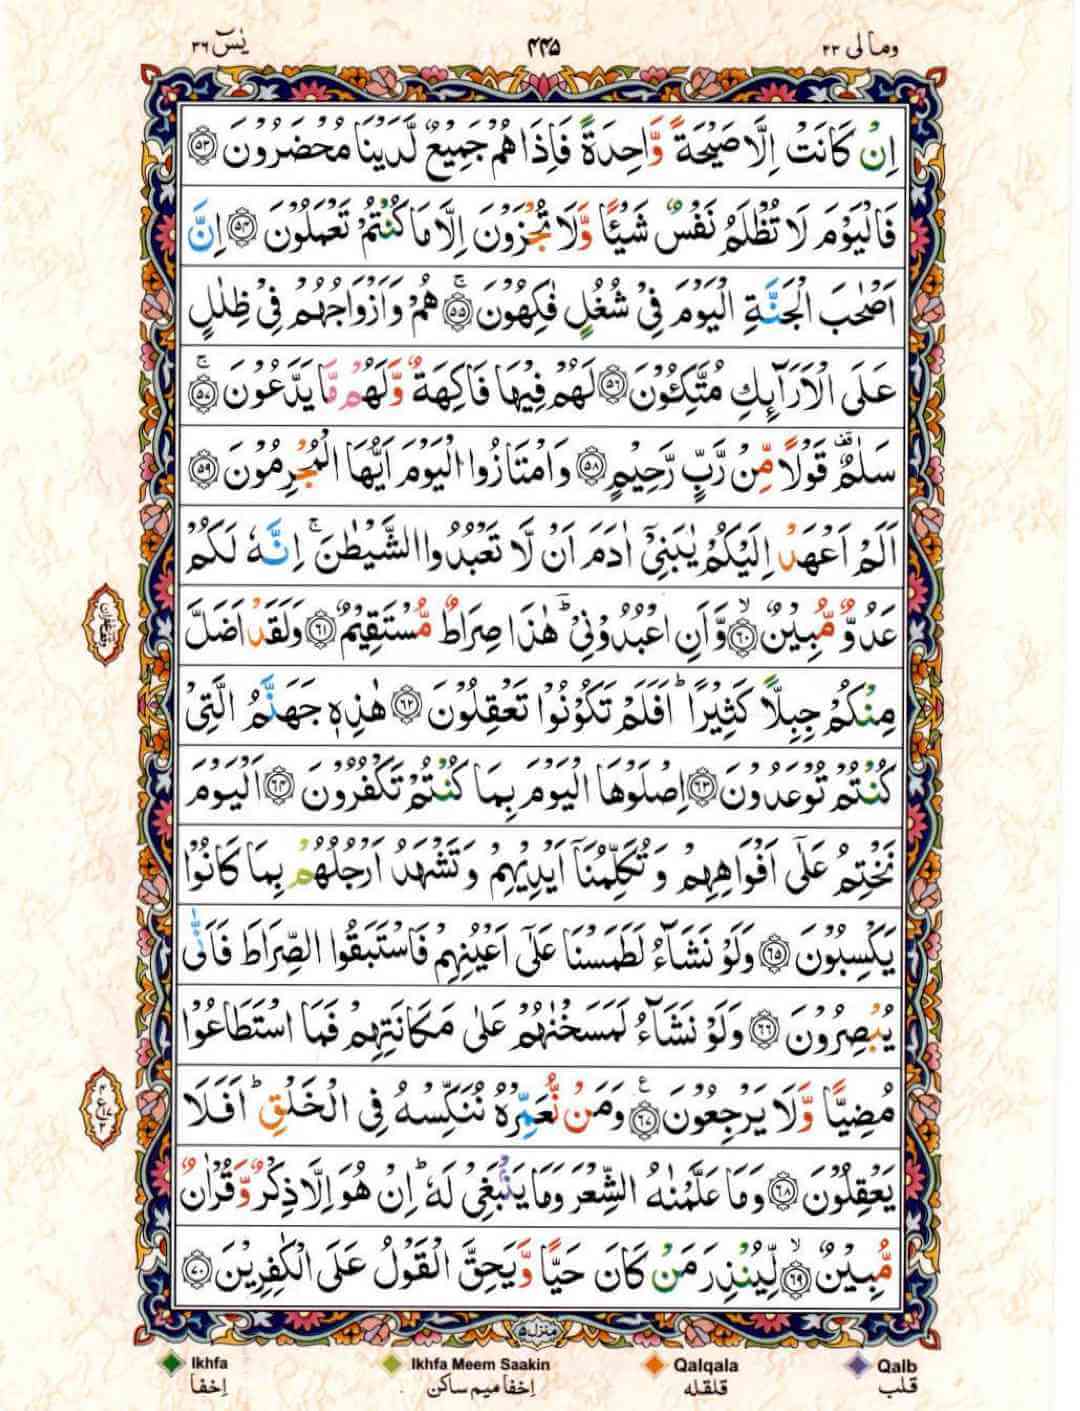 وما لی ۲۳ ۴۴۵ یٰسٓ ۳۶
اِنْ كَانَتْ اِلَّا صَيْحَةً وَّاحِدَةً فَاِذَا هُمْ جَمِيْعٌ لَّدَيْنَا مُحْضَرُوْنَ ۵۳
فَالْيَوْمَ لَا تُظْلَمُ نَفْسٌ شَيْئًا وَّلَا تُجْزَوْنَ اِلَّا مَا كُنْتُمْ تَعْمَلُوْنَ ۵۴ اِنَّ
اَصْحٰبَ الْجَنَّةِ الْيَوْمَ فِيْ شُغُلٍ فٰكِهُوْنَ ۚ ۵۵ هُمْ وَاَزْوَاجُهُمْ فِيْ ظِلٰلٍ
عَلَى الْاَرَآىِٕكِ مُتَّكِـُٔوْنَ ۵۶ لَهُمْ فِيْهَا فَاكِهَةٌ وَّلَهُمْ مَّا يَدَّعُوْنَ ۚ ۵۷
سَلٰمٌ ۣ قَوْلًا مِّنْ رَّبٍّ رَّحِيْمٍ ۵۸ وَامْتَازُوا الْيَوْمَ اَيُّهَا الْمُجْرِمُوْنَ ۵۹
اَلَمْ اَعْهَدْ اِلَيْكُمْ يٰبَنِيْٓ اٰدَمَ اَنْ لَّا تَعْبُدُوا الشَّيْطٰنَ ۚ اِنَّهٗ لَكُمْ
عَدُوٌّ مُّبِيْنٌ ۙ ۶۰ وَّاَنِ اعْبُدُوْنِيْ ؕ هٰذَا صِرَاطٌ مُّسْتَقِيْمٌ ۶۱ وَلَقَدْ اَضَلَّ
مِنْكُمْ جِبِلًّا كَثِيْرًا ؕ اَفَلَمْ تَكُوْنُوْا تَعْقِلُوْنَ ۶۲ هٰذِهٖ جَهَنَّمُ الَّتِيْ
كُنْتُمْ تُوْعَدُوْنَ ۶۳ اِصْلَوْهَا الْيَوْمَ بِمَا كُنْتُمْ تَكْفُرُوْنَ ۶۴ اَلْيَوْمَ
نَخْتِمُ عَلٰٓى اَفْوَاهِهِمْ وَتُكَلِّمُنَآ اَيْدِيْهِمْ وَتَشْهَدُ اَرْجُلُهُمْ بِمَا كَانُوْا
يَكْسِبُوْنَ ۶۵ وَلَوْ نَشَآءُ لَطَمَسْنَا عَلٰٓى اَعْيُنِهِمْ فَاسْتَبَقُوا الصِّرَاطَ فَاَنّٰى
يُبْصِرُوْنَ ۶۶ وَلَوْ نَشَآءُ لَمَسَخْنٰهُمْ عَلٰى مَكَانَتِهِمْ فَمَا اسْتَطَاعُوْا
مُضِيًّا وَّلَا يَرْجِعُوْنَ ۧ ۶۷ وَمَنْ نُّعَمِّرْهُ نُنَكِّسْهُ فِي الْخَلْقِ ؕ اَفَلَا
يَعْقِلُوْنَ ۶۸ وَمَا عَلَّمْنٰهُ الشِّعْرَ وَمَا يَنْۢبَغِيْ لَهٗ ؕ اِنْ هُوَ اِلَّا ذِكْرٌ وَّقُرْاٰنٌ
مُّبِيْنٌ ۙ ۶۹ لِّيُنْذِرَ مَنْ كَانَ حَيًّا وَّيَحِقَّ الْقَوْلُ عَلَى الْكٰفِرِيْنَ ۷۰
منزل ۵
Ikhfa Ikhfa Meem Saakin Qalqala Qalb
اِخفا اِخفا میم ساکن قلقله قلب